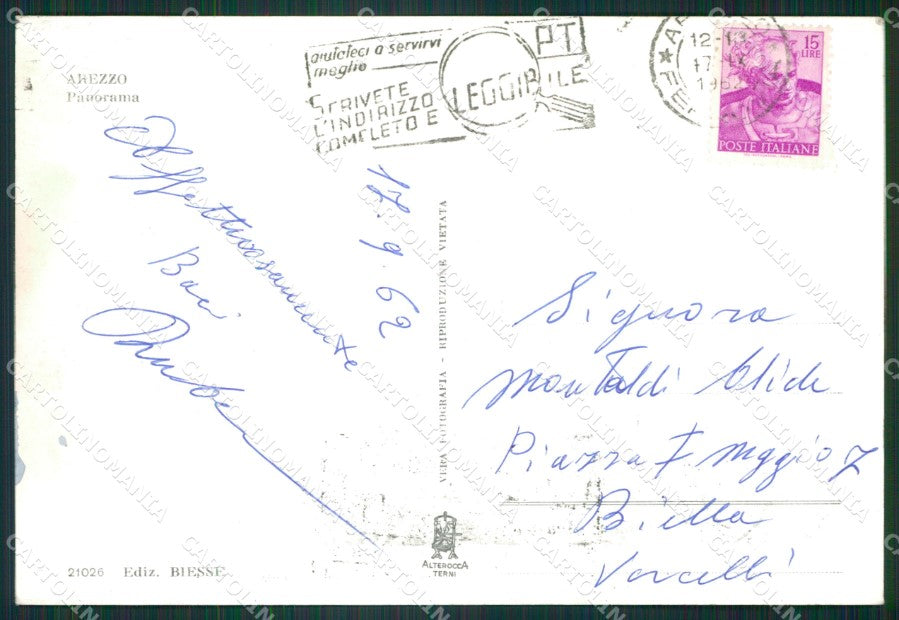 AREZZO
Panorama
aiutateci a servirvi
meglio
SCRIVETE
L'INDIRIZZO
COMPLETO E
LEGGIBILE
PT
12
17 IX
1962
15
LIRE
POSTE ITALIANE
Affettuosamente
Baci
17.9.62
VERA FOTOGRAFIA - RIPRODUZIONE VIETATA
Signora
Montaldi Clide
Piazza 1 Maggio 7
Biella
Vercelli
ALTEROCCA
TERNI
21026 Ediz. BIESSE
CARTOLINOMANIA